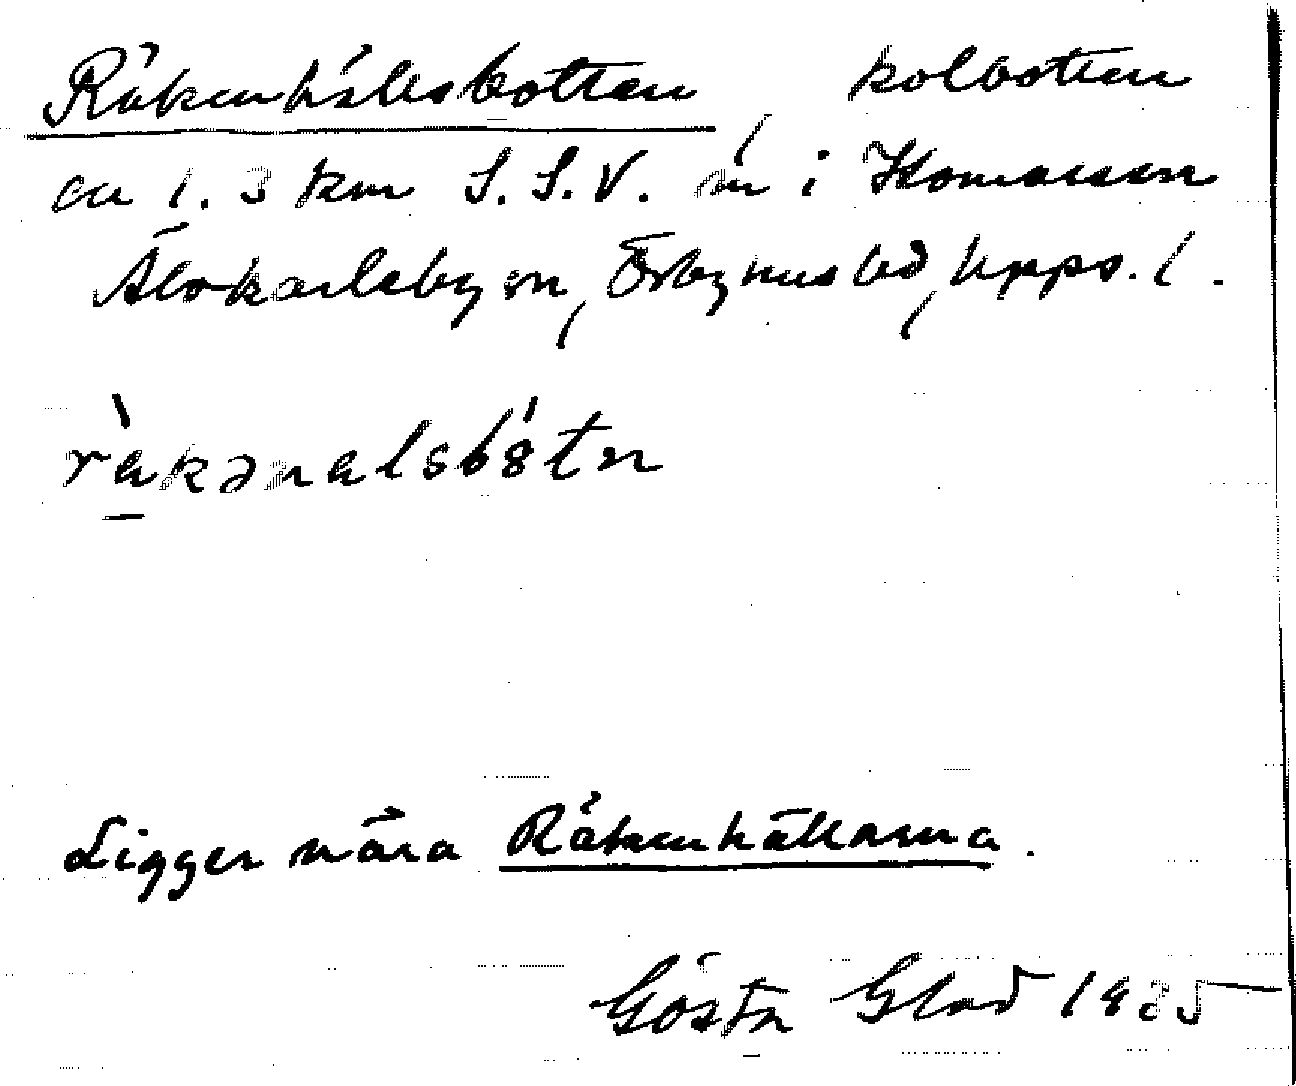 Råkenhällsbotten, kolbotten
ca 1.3 km S.S.V. in i Komossen
Älvkarleby sn, Örbyhus hd, Upps. l.
ràkənalsbótn
Ligger nära Råkenhällarna.
Gösta Glad 1935